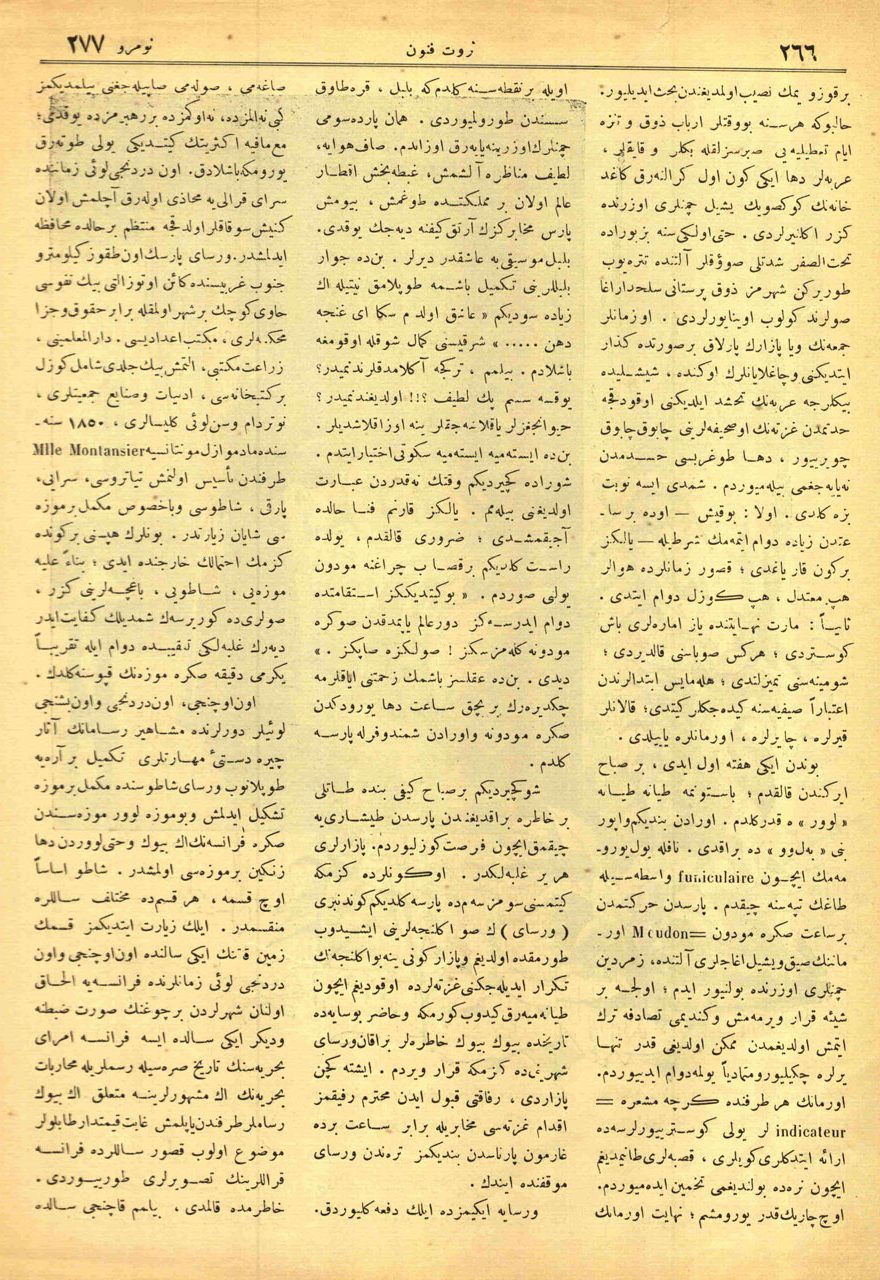 ٢٦٦
ثروت فنون
نومرو ٢٧٧
برقوزو يمك نصيب اولمديغندن بحث ايديليور.
حالبوكه هر سنه بووقتلر ارباب ذوق و تنزه
ايام تعطيليه يى صبرسزلقله بكلر و قايقلى ،
عربه لر دها ايكى كون اول كرالنه رق كاغد
خانه نك كوكصويك يشيل چمنلرى اوزرنده
كزر اكلنيرلردى . حتى اولكى سنه بز بوراده
تحت الصفر شدتلى صوؤقلر آلتنده تتره يوب
طوربركن شهرمز ذوق پرستانى سلحدارآغا
صولرنده كولوب اوينايورلردى . اوزمانلر
جمعه نك ويا پازارك پارلاق برصورتده كذار
ايتديكنى وچاغلايانلرك اوكنده ، شيشليده
بيكلرجه عربه نك تحشد ايلديكنى اوقودقجه
حدتمدن غزته نك اوصحيفه لرينى چابوق چابوق
چويرييور ، دها طوغريسى حسدمدن
نه ياپه جغمى بيله ميوردم . شمدى ايسه نوبت
بزه كلدى . اولا : بوقيش — اوده برسا-
عتدن زياده دوام ايتمه مك شرطيله — يالكز
بركون قار ياغدى ؛ قصور زمانلرده هوالر
هپ معتدل ، هپ كوزل دوام ايتدى .
ثانياً : مارت نهايتنده ياز اماره لرى باش
كوستردى ؛ هركس صوباسنى قالديردى ؛
شومينه سنى تميزلندى ؛ هله مايس ابتدالرندن
اعتباراً صيفيه سنه كيده جكلر كيتدى؛ قالانلر
قيرلره ، چايرلره ، اورمانلره ياييلدى .
بوندن ايكى هفته اول ايدى ، بر صباح
ايركندن قالقدم ؛ باستونمه طيانه طيانه
« لوور » ه قدر كلدم . اورادن بنديكم واپور
بنى « به ل وو » ده براقدى . نافله يول يورو-
مه مك ايچون funiculaire واسطه سيله
طاغك تپه سنه چيقدم . پارسدن حركتمدن
برساعت صكره مودون =Meudon اور-
ماننك صيق ويشيل اغاجلرى آلتنده، زمردين
چمنلرى اوزرنده بولنيور ايدم ؛ اولجه بر
شيئه قرار ويرمه مش وكنديمى تصادفه ترك
ايتمش اولديغمدن ممكن اولديغى قدر تنها
يرلره چكيليور ومتماديا يولمه دوام ايدييوردم.
اورمانك هر طرفنده كرچه مشعره =
indicateur لر يولى كوستريیورلرسه ده
ارائه ايتدكلرى كويلرى ، قصبه لرى طانيمديغم
ايچون نره ده بولنديغمى تخمين ايده ميوردم.
اوچ چاريك قدر يورومشم ؛ نهايت اورمانك
اويله بر نقطه سنه كلدم كه بلبل ، قره طاوق
سسندن طورولميوردى . همان پارده سومى
چمنلرك اوزرينه يايه رق اوزاندم. صاف هوايه،
لطيف مناظره آلشمش، غبطه بخش اقطار
عالم اولان بر مملكتده طوغمش ، بيومش
پارس مخابركزك آرتق كيفنه ديه جك يوقدى.
بلبل موسيقى يه عاشقدر ديرلر . بن ده جوار
بلبللرينى تكميل باشمه طوپلامق نيتيله اك
زياده سوديكم « عاشق اولدم سكا اى غنجه
دهن ..... » شرقيسنى كمال شوقله اوقومغه
باشلادم . بيلمم ، تركجه آكلامدقلرندنميدر؟
يوقسه سسم پك لطيف ؟!! اولديغندنميدر ؟
حيوانجغزلر ياقلاشه جقلر ينه اوزاقلاشديلر .
بن ده ايسته ميه ايسته ميه سكوتى اختيار ايتدم .
شوراده كچيرديكم وقتك نه قدردن عبارت
اولديغنى بيله مم . يالكز قارنم فنا حالده
آجيقمشدى ؛ ضرورى قالقدم ، يولده
راست كلديكم برقصاب چراغنه مودون
يولنى صوردم . « بو كيتديككز استقامتده
دوام ايدرسه كز دورعالم ياپمدقدن صوكره
مودونه كله مزسكز ! صولكزه صاپكز . »
ديدى . بن ده عقلسز باشمك زحمتنى اياقلرمه
چكديره رك بر بچق ساعت دها يورودكدن
صكره مودونه واورادن شمندوفرله پارسه
كلدم .
شو كچيرديكم برصباح كيفى بنده طاتلى
بر خاطره براقديغندن پارسدن طيشارى يه
چيقمق ايچون فرصت كوزليوردم. پازارلرى
هر ير غلبه لكدر. اوكونلرده كزمكه
كيتمسنى سومزسه م ده پارسه كلديكم كوندنبرى
( ورساى ) ك صو اكلنجه لرينى ايشيدوب
طورمقده اولديغم وپازاركونى ينه بو اكلنجه نك
تكرار ايديله جكنى غزته لرده اوقوديغم ايچون
طيانه ميه رق كيدوب كورمكه وحاضر بوسايه ده
تاريخده بيوك بيوك خاطره لر براقان ورساى
شهرنى ده كزمكه قرار ويردم . ايشته كچن
پازاردى ، رفاقتى قبول ايدن محترم رفيقمز
اقدام غزته سى مخابريله برابر ساعت برده
غارمون پارناسدن بنديكمز تره ندن ورساى
موقفنده ايندك .
ورسايه ايكيمزده ايلك دفعه كليوردق.
صاغه مى ، صوله مى صاپيله جغنى بيلمديكمز
كبى نه المزده، نه اوكمزده بر رهبرمزده يوقدى؛
مع مافيه اكثريتك كيتديكى يولى طوته رق
يورومكه باشلادق. اون دردنجى لوئى زماننده
سراى قرالى يه محاذى اوله رق آچلمش اولان
كنيش سوقاقلر اولدقجه منتظم برحالده محافظه
ايدلمشدر. ورساى پارسك اون طقوز كيلومترو
جنوب غربيسنده كائن اوتوزآلتى بيك نفوسى
حاوى كوچك بر شهر اولمقله برابر حقوق وجزا
محكمه لرى، مكتب اعداديسى. دارالمعلمينى ،
زراعت مكتبى، التمش بيك جلدى شامل كوزل
بر كتبخانه سى ، ادبيات وصنايع جمعيتلرى ،
نوتردام وسن لوئى كليسالرى ، ١٨٥٠ سنه-
سنده مادموازل مونتانسيه Mlle Montansier
طرفندن تأسيس اولنمش تياتروسى، سرايى،
پارقى ، شاطوسى وباخصوص مكمل برموزه
سى شايان زيارتدر. بونلرك هپسنى بركونده
كزمك احتمالك خارجنده ايدى ؛ بناءً عليه
موزه يى ، شاطويى ، باغچه لرينى كزر ،
صولرى ده كوررسه ك شمديلك كفايت ايدر
ديه رك غلبه لكى تعقيبده دوام ايله تقريباً
يكرمى دقيقه صكره موزه نك قپوسنه كلدك .
اون اوچنجى، اون دردنجى واون بشنجى
لوئيلر دورلرنده مشاهير رسامانك آثار
چيره دستئ مهارتلرى تكميل بر آره يه
طوپلانوب ورساى شاطوسنده مكمل برموزه
تشكيل ايدلمش وبوموزه لوور موزه سندن
صكره فرانسه نك اك بيوك وحتى لووردن دها
زنكين برموزه سى اولمشدر. شاطو اساساً
اوچ قسمه ، هر قسم ده مختلف ساللره
منقسمدر . ايلك زيارت ايتديكمز قسمك
زمين قتنك ايكى سالنده اون اوچنجى واون
دردنجى لوئى زمانلرنده فرانسه يه الحاق
اولنان شهرلردن برچوغنك صورت ضبطنه
وديكر ايكى سالده ايسه فرانسه امراى
بحريه سنك تاريخ صره سيله رسملريله محاربات
بحريه نك اك مشهورلرينه متعلق اك بيوك
رساملر طرفندن ياپلمش غايت قيمتدار طابلولر
موضوع اولوب قصور ساللرده فرانسه
قراللرينك تصويرلرى طورييوردى .
خاطرمده قالمدى ، بيلمم قاچنجى سالده